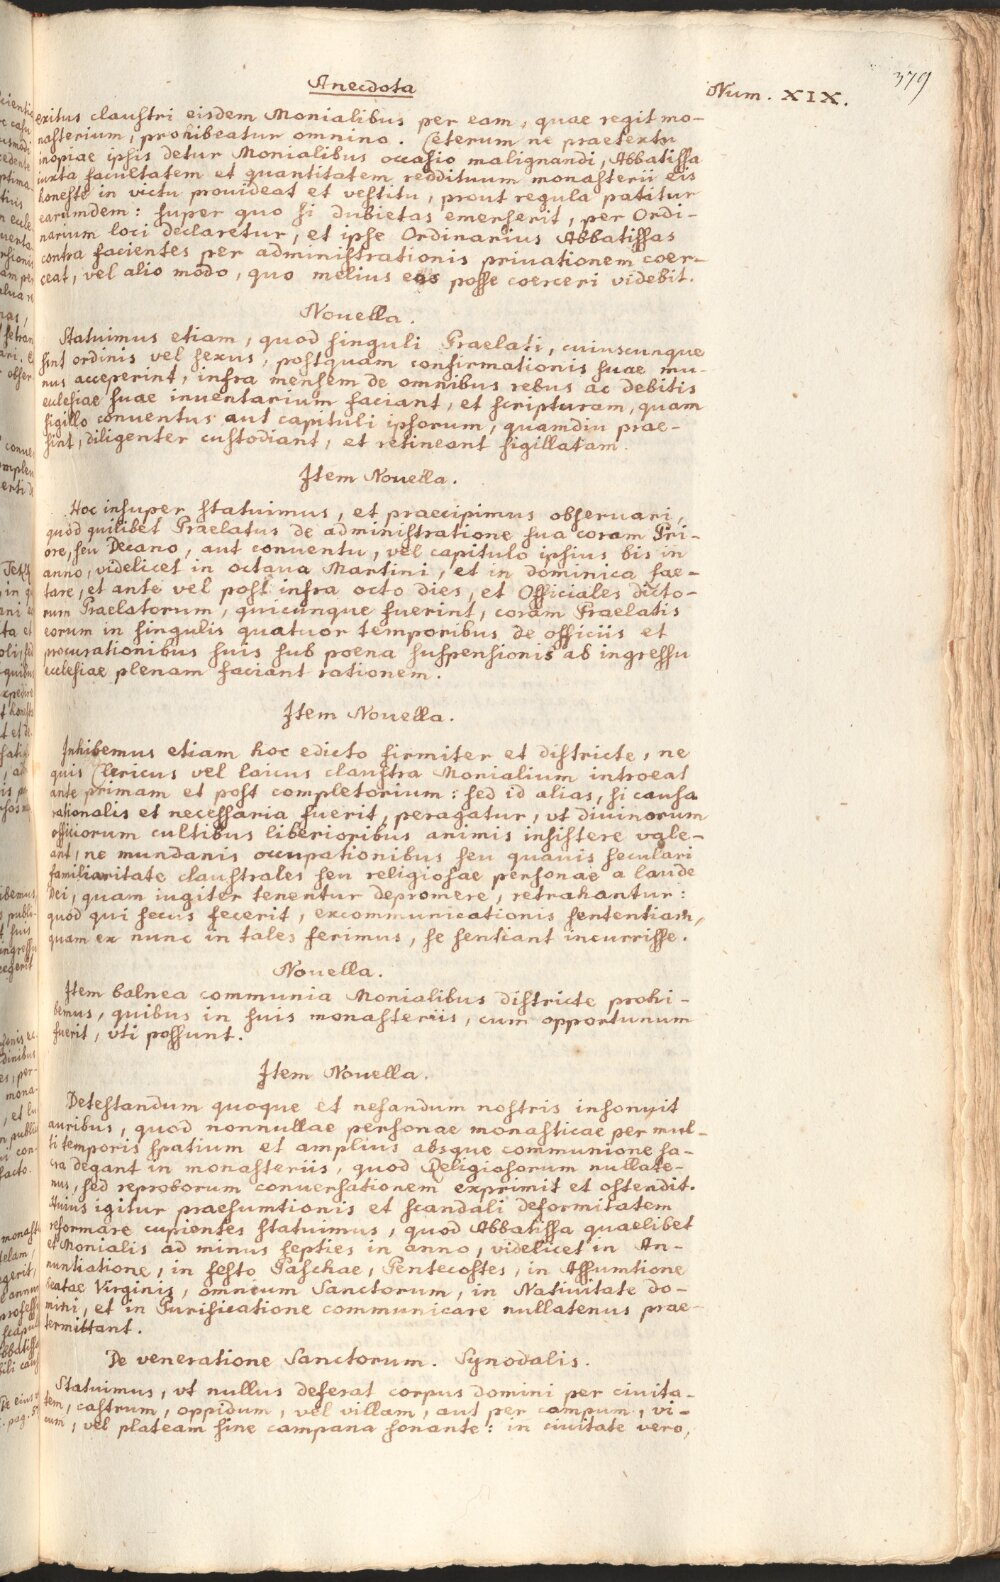 Anecdota
Num. XIX.
379
exitus claustri eisdem Monialibus per eam, quae regit mo-
nasterium, prohibeatur omnino. Ceterum ne praetextu
inopiae ipsis detur Monialibus occasio malignandi, Abbatissa
iuxta facultatem et quantitatem reddituum monasterii eis
honeste in victu prouideat et vestitu, prout regula patitur
earumdem: super quo si dubietas emerserit, per Ordi-
narium loci declaretur, et ipse Ordinarius Abbatissas
contra facientes per administrationis priuationem coer-
ceat, vel alio modo, quo melius eas posse coerceri videbit.
Nouella.
Statuimus etiam, quod singuli Praelati, cuiuscunque
sint ordinis vel sexus, postquam confirmationis suae mu-
nus acceperint, infra mensem de omnibus rebus ac debitis
ecclesiae suae inuentarium faciant, et scripturam, quam
sigillo conuentus aut capituli ipsorum, quamdiu prae-
sint, diligenter custodiant, et retineant sigillatam.
Item Nouella.
Hoc insuper statuimus, et praecipimus obseruari,
quod quilibet Praelatus de administratione sua coram Pri-
ore, seu Decano, aut conuentu, vel capitulo ipsius bis in
anno, videlicet in octaua Martini, et in dominica Lae-
tare, et ante vel post infra octo dies, et Officiales dicto-
rum Praelatorum, quicunque fuerint, coram Praelatis
eorum in singulis quatuor temporibus de officiis et
procurationibus suis sub poena suspensionis ab ingressu
ecclesiae plenam faciant rationem.
Item Nouella.
Inhibemus etiam hoc edicto firmiter et districte, ne
quis Clericus vel laicus claustra Monialium introeat
ante primam et post completorium: sed id alias, si causa
rationalis et necessaria fuerit, peragatur, vt diuinorum
officiorum cultibus liberioribus animis insistere vale-
ant, ne mundanis occupationibus seu quauis seculari
familiaritate claustrales seu religiosae personae a laude
Dei, quam iugiter tenentur depromere, retrahantur:
quod qui secus fecerit, excommunicationis sententiam,
quam ex nunc in tales ferimus, se sentiant incurrisse.
Nouella.
Item balnea communia Monialibus districte prohi-
bemus, quibus in suis monasteriis, cum opportunum
fuerit, vti possunt.
Item Nouella.
Detestandum quoque et nefandum nostris insonuit
auribus, quod nonnullae personae monasticae per mul-
ti temporis spatium et amplius absque communione sa-
cra degant in monasteriis, quod Religiosorum nullate-
nus, sed reproborum conuersationem exprimit et ostendit.
Huius igitur praesumtionis et scandali deformitatem
reformare cupientes statuimus, quod Abbatissa quaelibet
et Monialis ad minus septies in anno, videlicet in An-
nuntiatione, in festo Paschae, Pentecostes, in Assumtione
beatae Virginis, omnium Sanctorum, in Natiuitate do-
mini, et in Purificatione communicare nullatenus prae-
termittant.
De veneratione Sanctorum. Synodalis.
Statuimus, vt nullus deferat corpus domini per ciuita-
tem, castrum, oppidum, vel villam, aut per campum, vi-
cum, vel plateam sine campana sonante: in ciuitate vero,